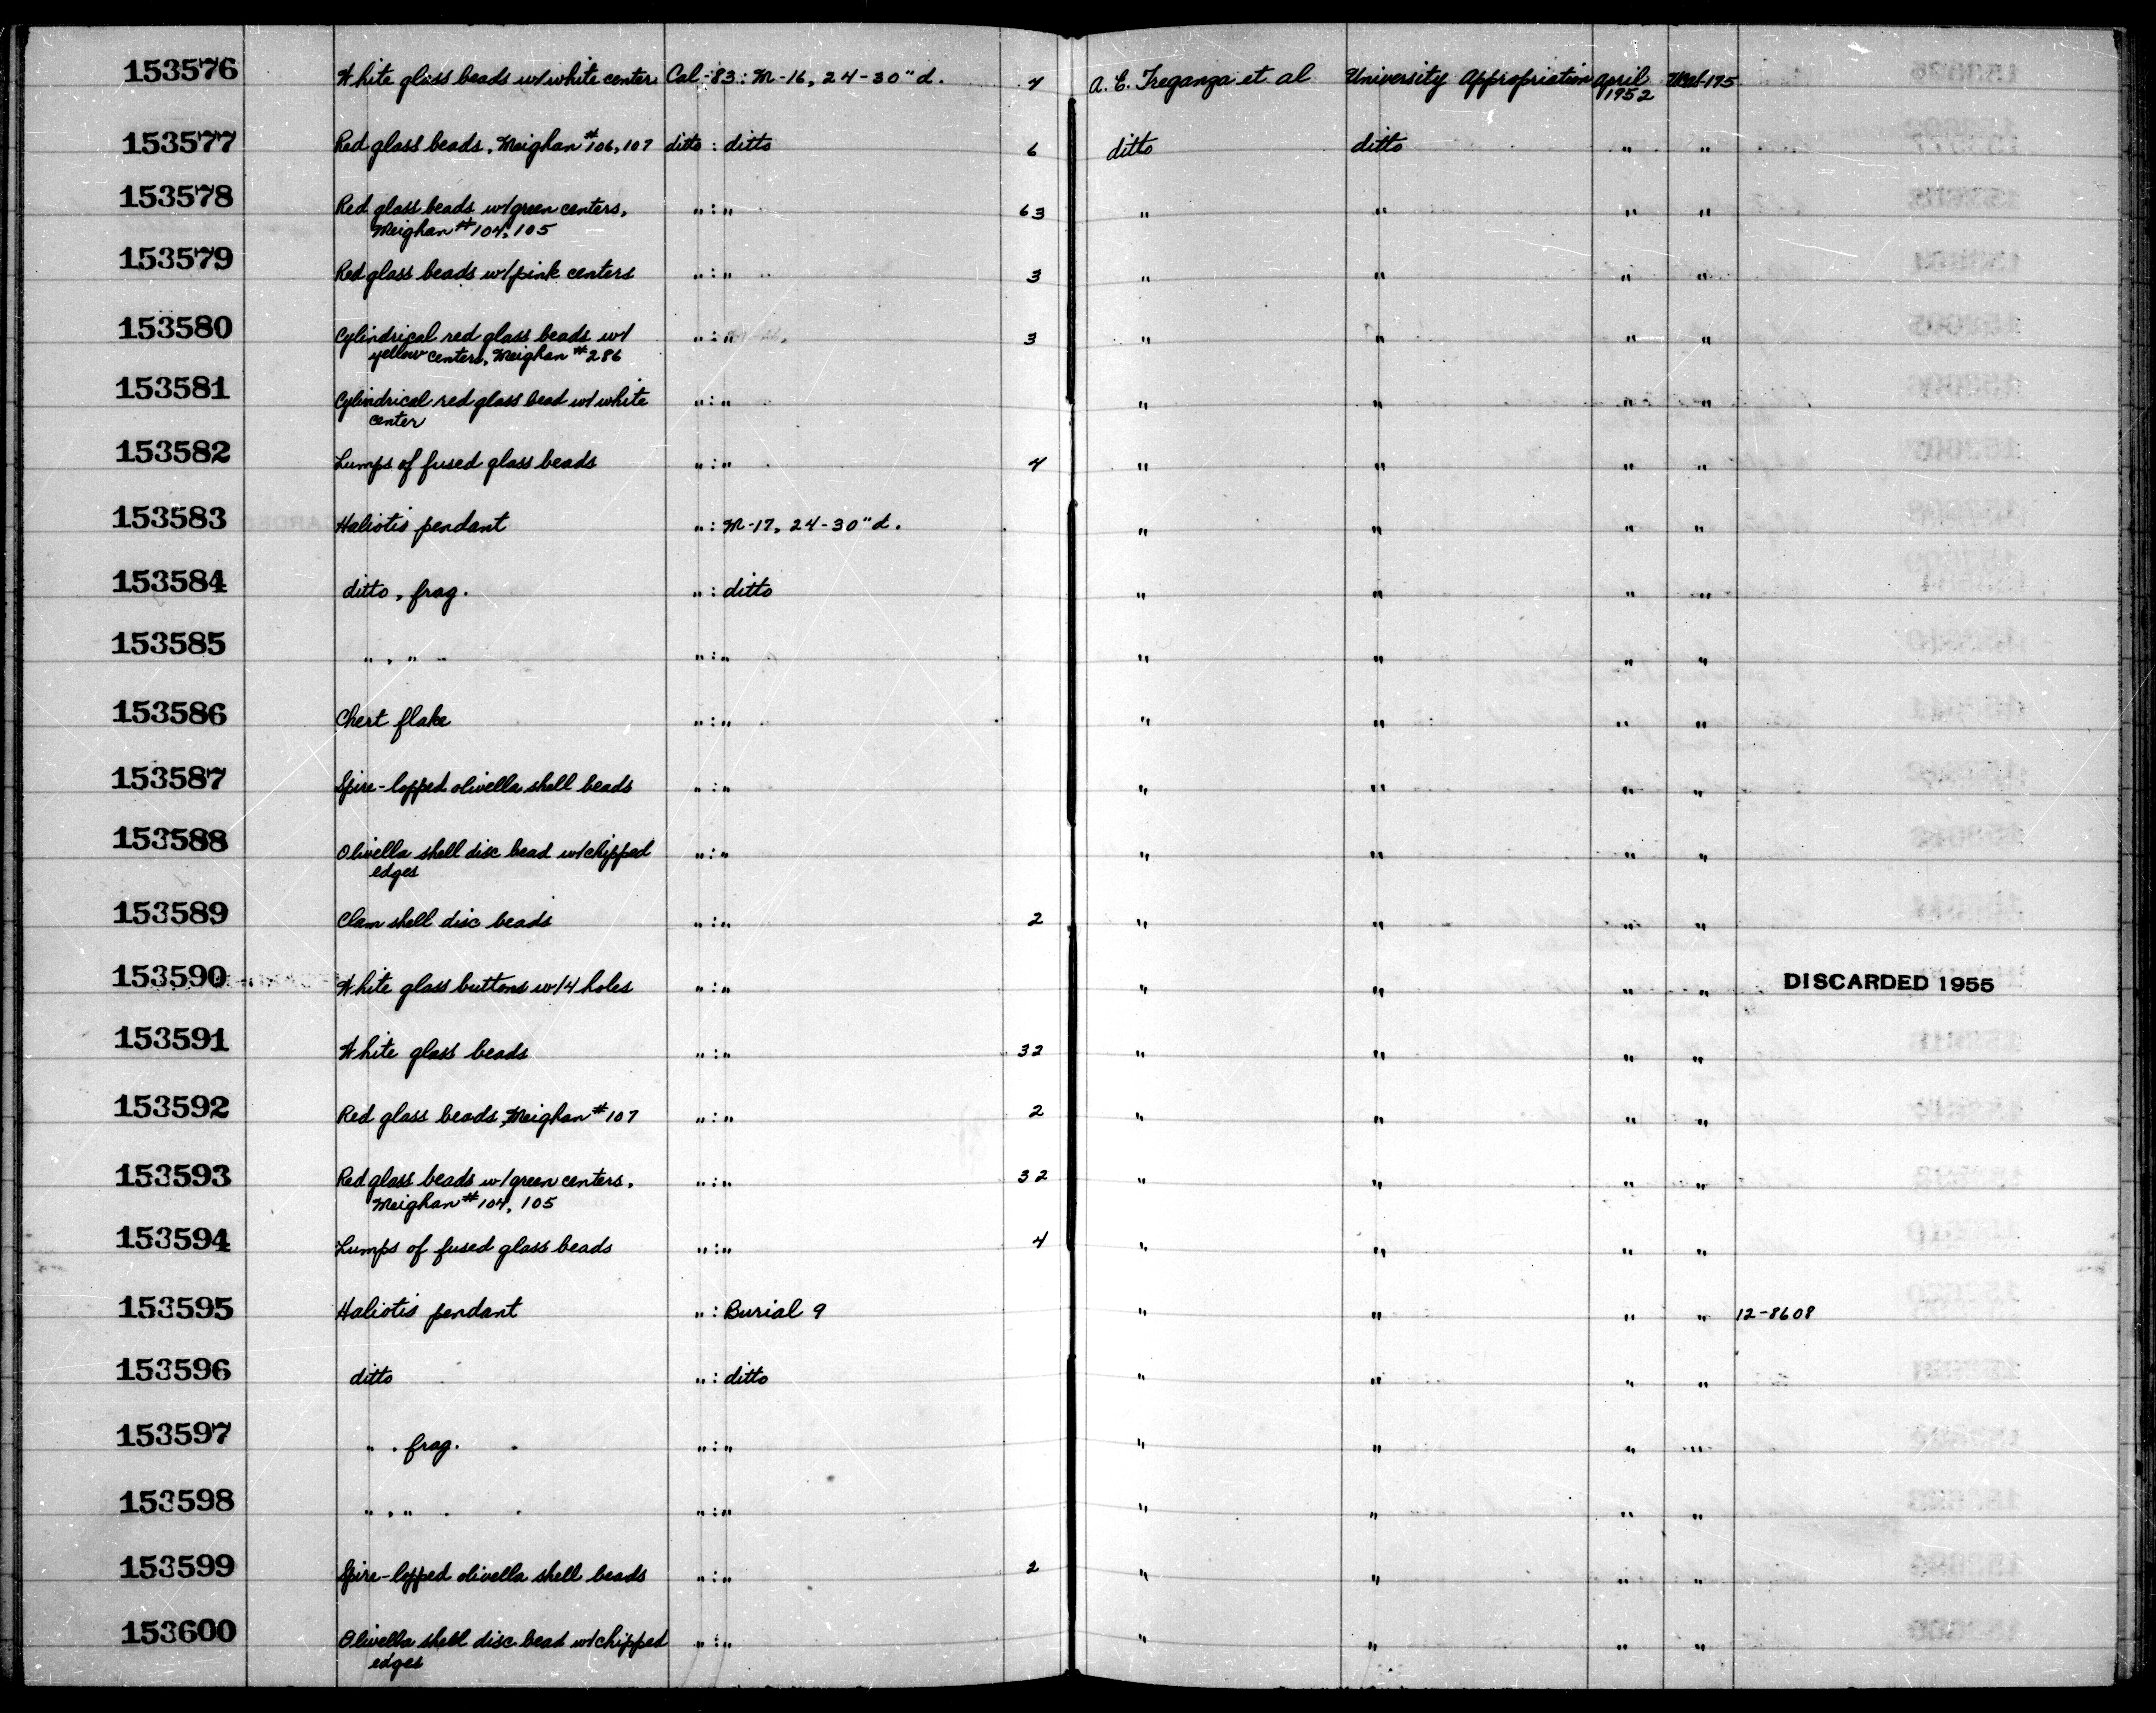 153576 White glass beads w/white center Cal-83: M-16, 24-30" d. 7 A. E. Treganza et al University Appropriation April 1952
153577 Red glass beads, Meighan #106, 107 ditto : ditto 6 ditto ditto " "
153578 Red glass beads w/green centers, " : " 63 " " " "
Meighan #104, 105
153579 Red glass beads w/pink centers " : " 3 " " " "
153580 Cylindrical red glass beads w/ " : " 3 " " " "
yellow centers, Meighan #286
153581 Cylindrical red glass bead w/white " : " " " " "
center
153582 Lumps of fused glass beads " : " 4 " " " "
153583 Haliotis pendant " : M-17, 24-30" d. " " " "
153584 ditto, frag. " : ditto " " " "
153585 " , " " : " " " " "
153586 Chert flake " : " " " " "
153587 Spire-lopped olivella shell beads " : " " " " "
153588 Olivella shell disc bead w/chipped " : " " " " "
edges
153589 Clam shell disc beads " : " 2 " " " "
153590 White glass buttons w/4 holes " : " " " " " DISCARDED 1955
153591 White glass beads " : " 32 " " " "
153592 Red glass beads, Meighan #107 " : " 2 " " " "
153593 Red glass beads w/green centers, " : " 32 " " " "
Meighan #104, 105
153594 Lumps of fused glass beads " : " 4 " " " "
153595 Haliotis pendant " : Burial 9 " " " " 12-8608
153596 ditto " : ditto " " " "
153597 " , frag. " : " " " " "
153598 " , " " : " " " " "
153599 Spire-lopped olivella shell beads " : " 2 " " " "
153600 Olivella shell disc bead w/chipped " : " " " " "
edges